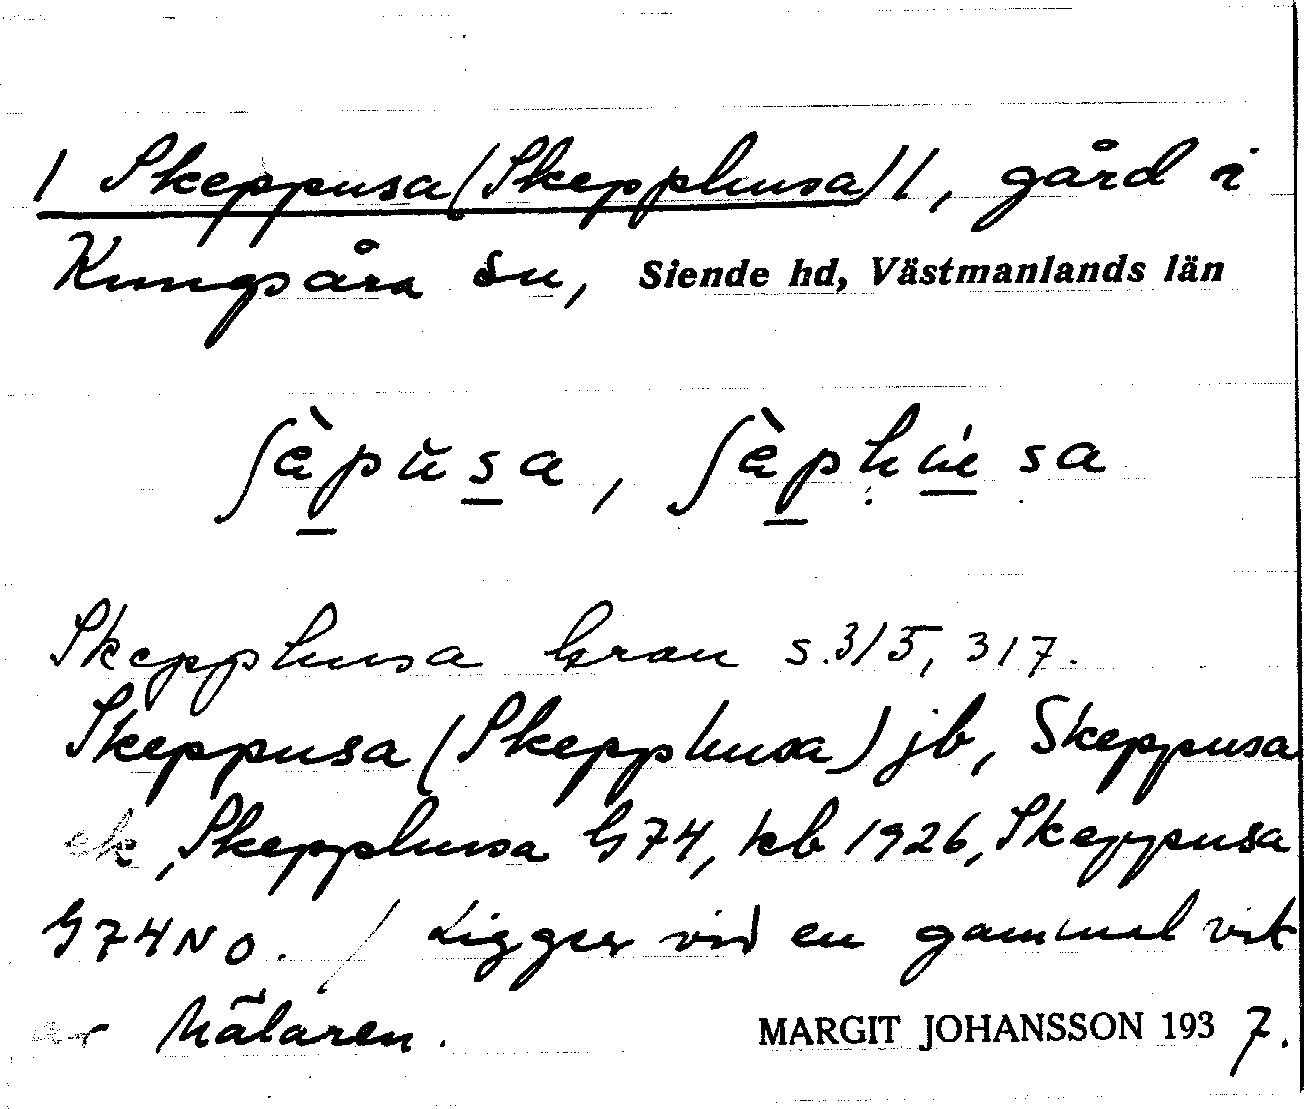 / Skeppusa (Skepphusa) /, gård i
Kungsåra sn, Siende hd, Västmanlands län
ʃèpŭsa, ʃèphúsa
Skepphusa Gran s. 315, 317.
Skeppusa (Skepphusa) jb, Skeppusa
ek, Skepphusa G74, kb 1926, Skeppusa
G74NO. / Ligger vid en gammal vik
av Mälaren. MARGIT JOHANSSON 1937.